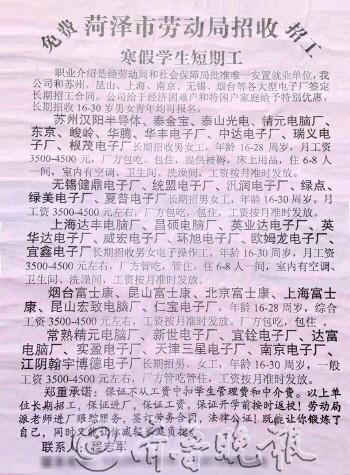 免费 菏泽市劳动局招收 招工
寒假学生短期工
职业介绍是经劳动局和社会保障局批准唯一安置就业单位，我
公司和苏州、昆山、上海、南京、无锡、烟台等各大型电子厂签定
长期招工合同。公司给于经济困难户和特困户家庭给予特别优惠。
长期招收16-30岁男女青年均可报名。
苏州汉阳半导体、泰金宝、泰山光电、精元电脑厂、
东京、峻岭、华腾、华丰电子厂、中达电子厂、瑞义电
子厂、根茂电子厂长期招收男女工，年龄16-28周岁，月工资
3500-4500元，厂方包吃、包住，提供被褥、床上用品，住6-8人
一间，室内有空调、卫生间、洗澡间，工资按月准时发放。
无锡健鼎电子厂、统盟电子厂、汎润电子厂、绿点、
绿美电子厂、夏普电子厂长期招男女工，年龄16-30周岁，月工
资3500-4500元左右，厂方包吃，包住，工资按月准时发放。
上海达丰电脑厂、昌硕电脑厂、英业达电子厂、英
华达电子厂、威宏电子厂、环旭电子厂、欧姆龙电子厂、
宜鑫电子厂长期招收男女电子操作工，年龄16-30周岁，月工资
3500-4500元左右，厂方管吃，管住，住6-8人一间，室内有空调、
卫生间、洗澡间，工资按月准时发放。
烟台富士康、昆山富士康、北京富士康、上海富士
康、昆山宏致电脑厂、仁宝电子厂，年龄16-28周岁，综合
工资3500-4500元左右，厂方包吃、包住，工资按月准时发放。
常熟精元电脑厂、新世电子厂、宜铨电子厂、达富
电脑厂、实盈电子厂、天津三星电子厂、南京电子厂、
江阴翰宇博德电子厂长期招男、女工，年龄16-30周岁，一般
工资3500-4500元左右，厂方管吃管住，工资按月准时发放。
郑重承诺：保证不从工资中扣学生管理费和中介费。以上单
位长期招工，保证进厂，保证工资，保证开学前按时返校！劳动局
派老师进厂跟踪服务，签订劳务合同，法律公证！既能让你锻炼了
自己，同时又能让你减轻家庭负担。
联系人：程志军
齐鲁晚报